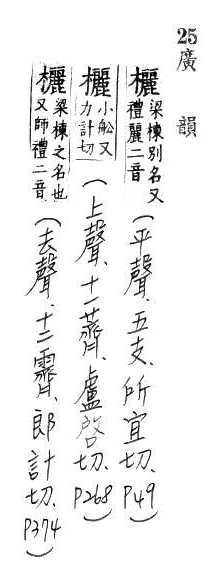 25 廣韻
欐 梁棟別名又禮麗二音 (平聲、五支、所宜切、P49)
欐 小舩又力計切 (上聲、十一薺、盧啓切、P268)
欐 梁棟之名也又師禮二音 (去聲、十二霽、郎計切、P374)